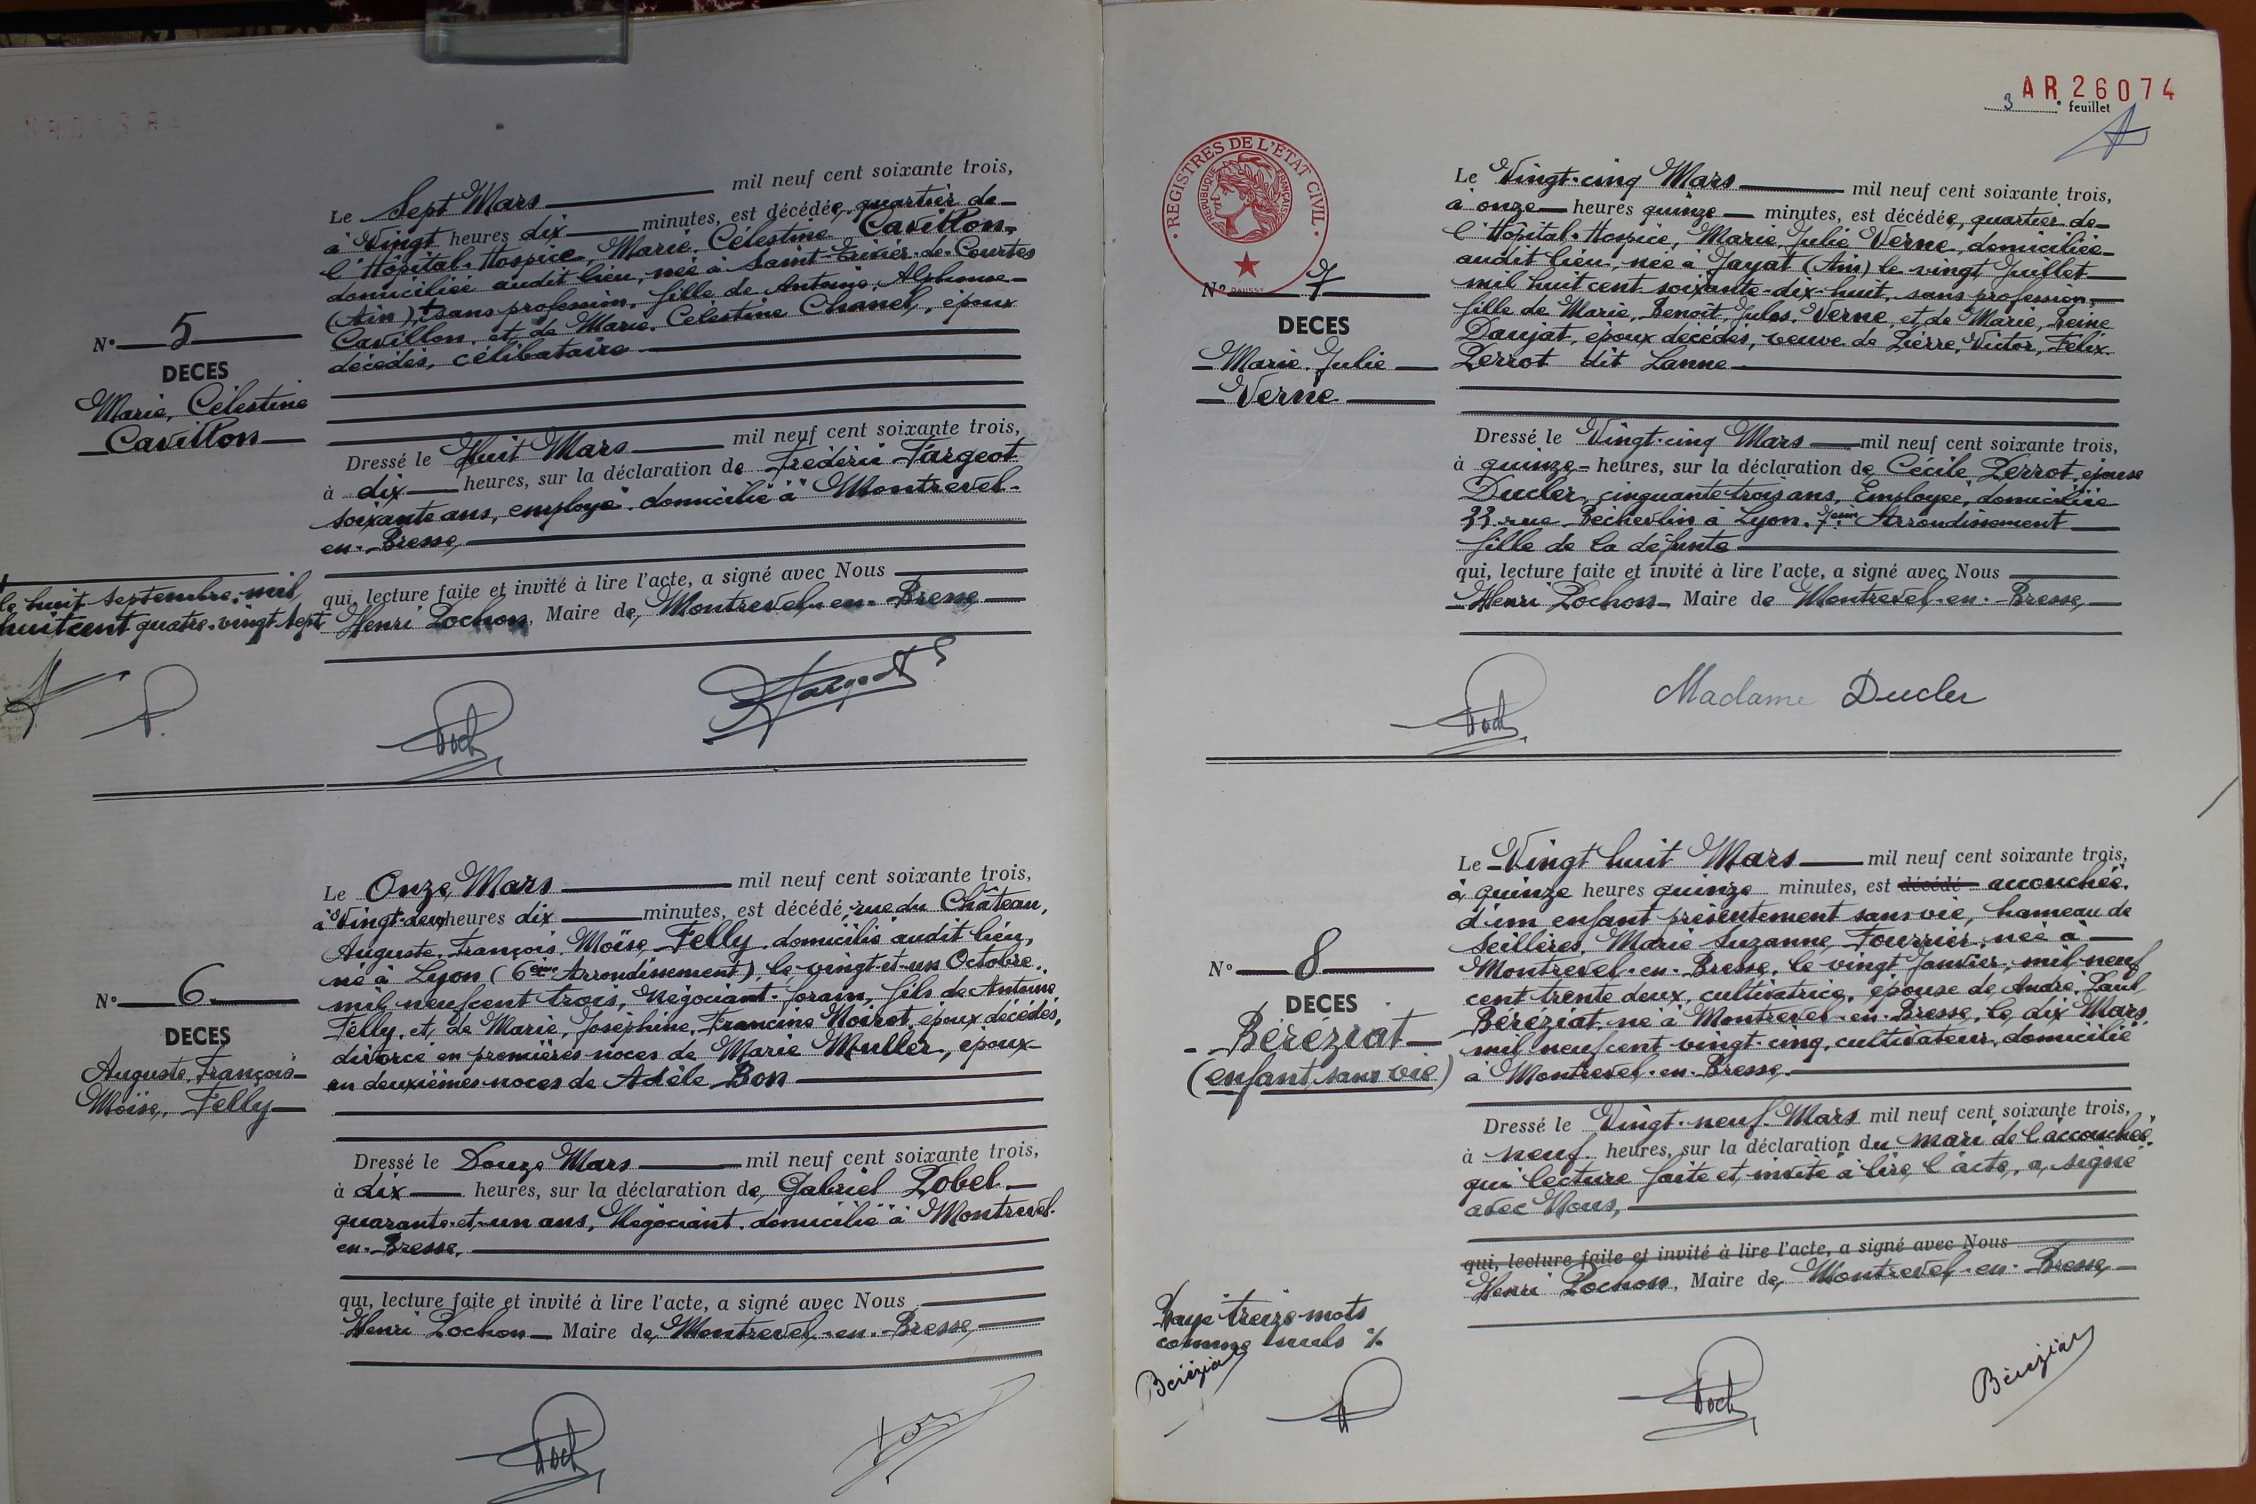 Le Sept Mars mil neuf cent soixante trois,
à Vingt heures dix minutes, est décédée, quartier de
l'Hôpital-Hospice, Marie, Célestine Cavillon,
domiciliée audit lieu, née à Saint-Trivier-de-Courtes
(Ain), sans profession, fille de Antoine, Alphonse
Cavillon, et de Marie, Celestine Chanel, époux
décédés, célibataire
N° 5
DECES
Marie, Célestine
Cavillon
Dressé le Huit Mars mil neuf cent soixante trois,
à dix heures, sur la déclaration de Frédéric Fargeot
soixante ans, employé, domicilié à Montrevel-
en-Bresse,
qui, lecture faite et invité à lire l'acte, a signé avec Nous
Henri Pochon, Maire de Montrevel-en-Bresse
le huit septembre mil
huit cent quatre-vingt-sept
Le Onze Mars mil neuf cent soixante trois,
à Vingt-deux heures dix minutes, est décédé, rue du Château,
Auguste, François, Moïse, Felly, domicilié audit lieu,
né à Lyon (6ème Arrondissement), le vingt-et-un Octobre
mil neuf cent trois, Négociant-forain, fils de Antoine
Felly, et de Marie, Joséphine, Francine Noirot, époux décédés,
divorcé en premières noces de Marie Muller, époux
en deuxièmes noces de Adèle Bon
N° 6
DECES
Auguste, François
Moïse, Felly
Dressé le Douze Mars mil neuf cent soixante trois,
à dix heures, sur la déclaration de Gabriel Pobel
quarante-et-un ans, Négociant, domicilié à Montrevel-
en-Bresse,
qui, lecture faite et invité à lire l'acte, a signé avec Nous
Henri Pochon Maire de Montrevel-en-Bresse,
AR 26074
3e feuillet
REGISTRES DE L'ETAT CIVIL
REPUBLIQUE FRANÇAISE
Le Vingt-cinq Mars mil neuf cent soixante trois,
à onze heures quinze minutes, est décédée, quartier de
l'Hôpital-Hospice, Marie, Julie Verne, domiciliée
audit lieu, née à Jayat (Ain) le vingt Juillet
mil huit cent soixante-dix-huit, sans profession,
fille de Marie, Benoît, Jules, Verne, et de Marie, Reine
Daujat, époux décédés, veuve de Pierre, Victor, Félix
Perrot dit Lanne
N° 7
DECES
Marie, Julie
Verne
Dressé le Vingt-cinq Mars mil neuf cent soixante trois,
à quinze heures, sur la déclaration de Cécile Perrot, épouse
Ducler, cinquante-trois ans, Employée, domiciliée
33 rue Béchevelin à Lyon, 7ème Arrondissement
fille de la défunte
qui, lecture faite et invité à lire l'acte, a signé avec Nous
Henri Pochon Maire de Montrevel-en-Bresse,
Madame Ducler
Le Vingt huit Mars mil neuf cent soixante trois,
à quinze heures quinze minutes, est décédé accouchée
d'un enfant présentement sans vie, hameau de
Seillères, Marie Suzanne Fourrier, née à
Montrevel-en-Bresse, le vingt Janvier, mil neuf
cent trente deux, cultivatrice, épouse de André, Paul
Béréziat, né à Montrevel-en-Bresse, le dix Mars
mil neuf cent vingt-cinq, cultivateur, domicilié
à Montrevel-en-Bresse
N° 8
DECES
Béréziat
(enfant sans vie)
Dressé le Vingt-neuf Mars mil neuf cent soixante trois,
à neuf heures, sur la déclaration du mari de l'accouchée
qui lecture faite et invité à lire l'acte, a signé
avec Nous,
qui, lecture faite et invité à lire l'acte, a signé avec Nous
Henri Pochon, Maire de Montrevel-en-Bresse,
Rayé treize mots
comme nuls
Béréziat
Béréziat